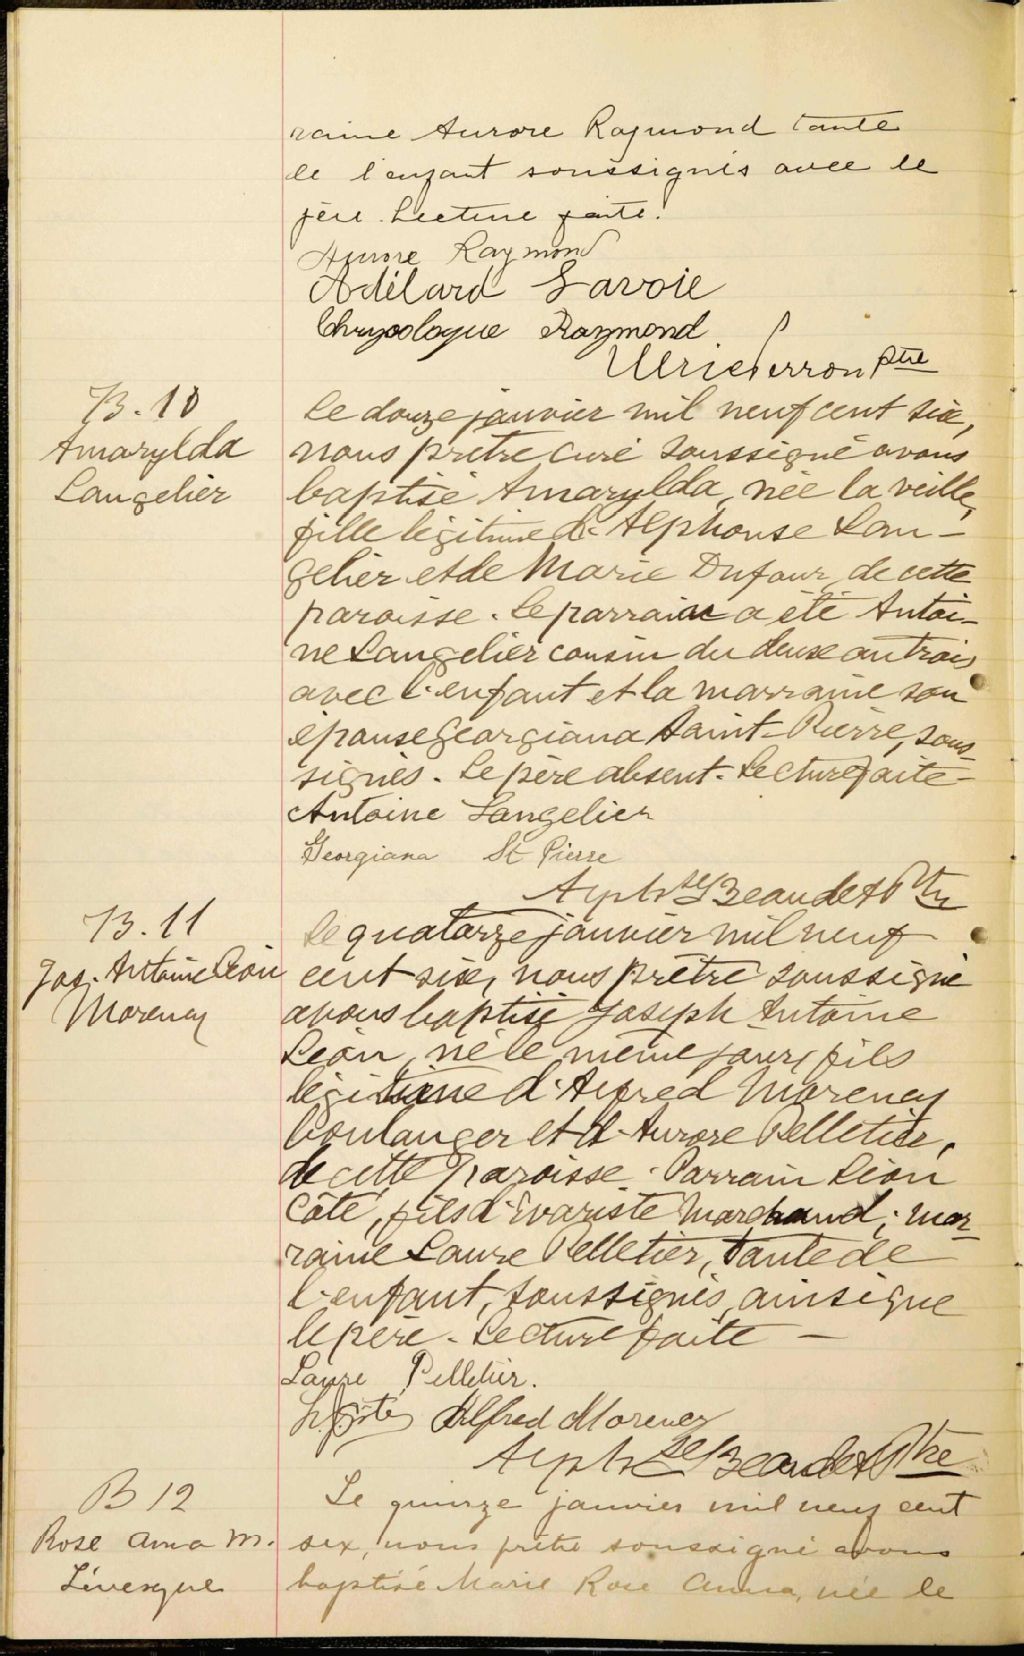 raine Aurore Raymond tante
de l'enfant soussignés avec le
père. Lecture faite.
Aurore Raymond
Adélard Savoie
Chrysologue Raymond
Ulric Perron Ptre
B. 10
Amarylda
Langelier
Le douze janvier mil neuf cent six,
nous prêtre curé soussigné avons
baptisé Amarylda, née la veille,
fille légitime d'Alphonse Lan-
gelier et de Marie Dufour, de cette
paroisse. Le parrain a été Antoi-
ne Langelier cousin du deux au trois
avec l'enfant et la marraine son
épouse Georgiana Saint-Pierre, sous-
signés. Le père absent. Lecture faite-
Antoine Langelier
Georgiana St Pierre
Alph. Beaudet Ptre
B. 11
Jos. Antoine Léon
Morency
Le quatorze janvier mil neuf
cent six, nous prêtre soussigné
avons baptisé Joseph Antoine
Léon, né le même jour, fils
légitime d'Alfred Morency
boulanger et d'Aurore Pelletier,
de cette paroisse. Parrain Léon
Côté, fils d'Evariste Marchand; mar-
raine Laure Pelletier, tante de
l'enfant, soussignés, ainsi que
le père. Lecture faite —
Laure Pelletier.
Côté Alfred Morency
Alph. Beaudet Ptre
B 12
Rose Anna M.
Lévesque
Le quinze janvier mil neuf cent
six, nous prêtre soussigné avons
baptisé Marie Rose Anna, née le